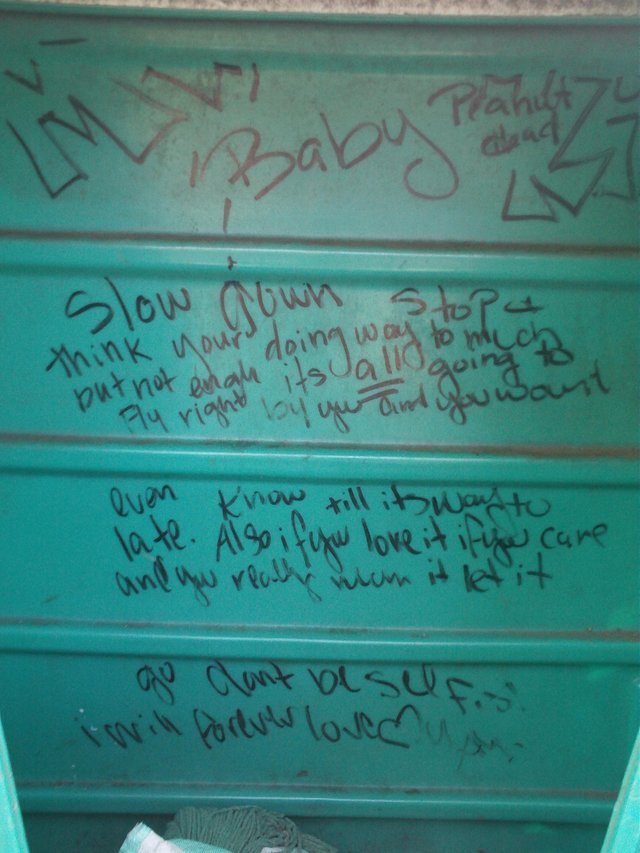 Baby
Peanut
Slow down Stop &
think your doing way to much
but not enguh its all going to
Fly right by yu and you wont
even know till its way to
late. Also if yu love it if yu care
and yu really mean it let it
go dont be self
i will forever love ♡